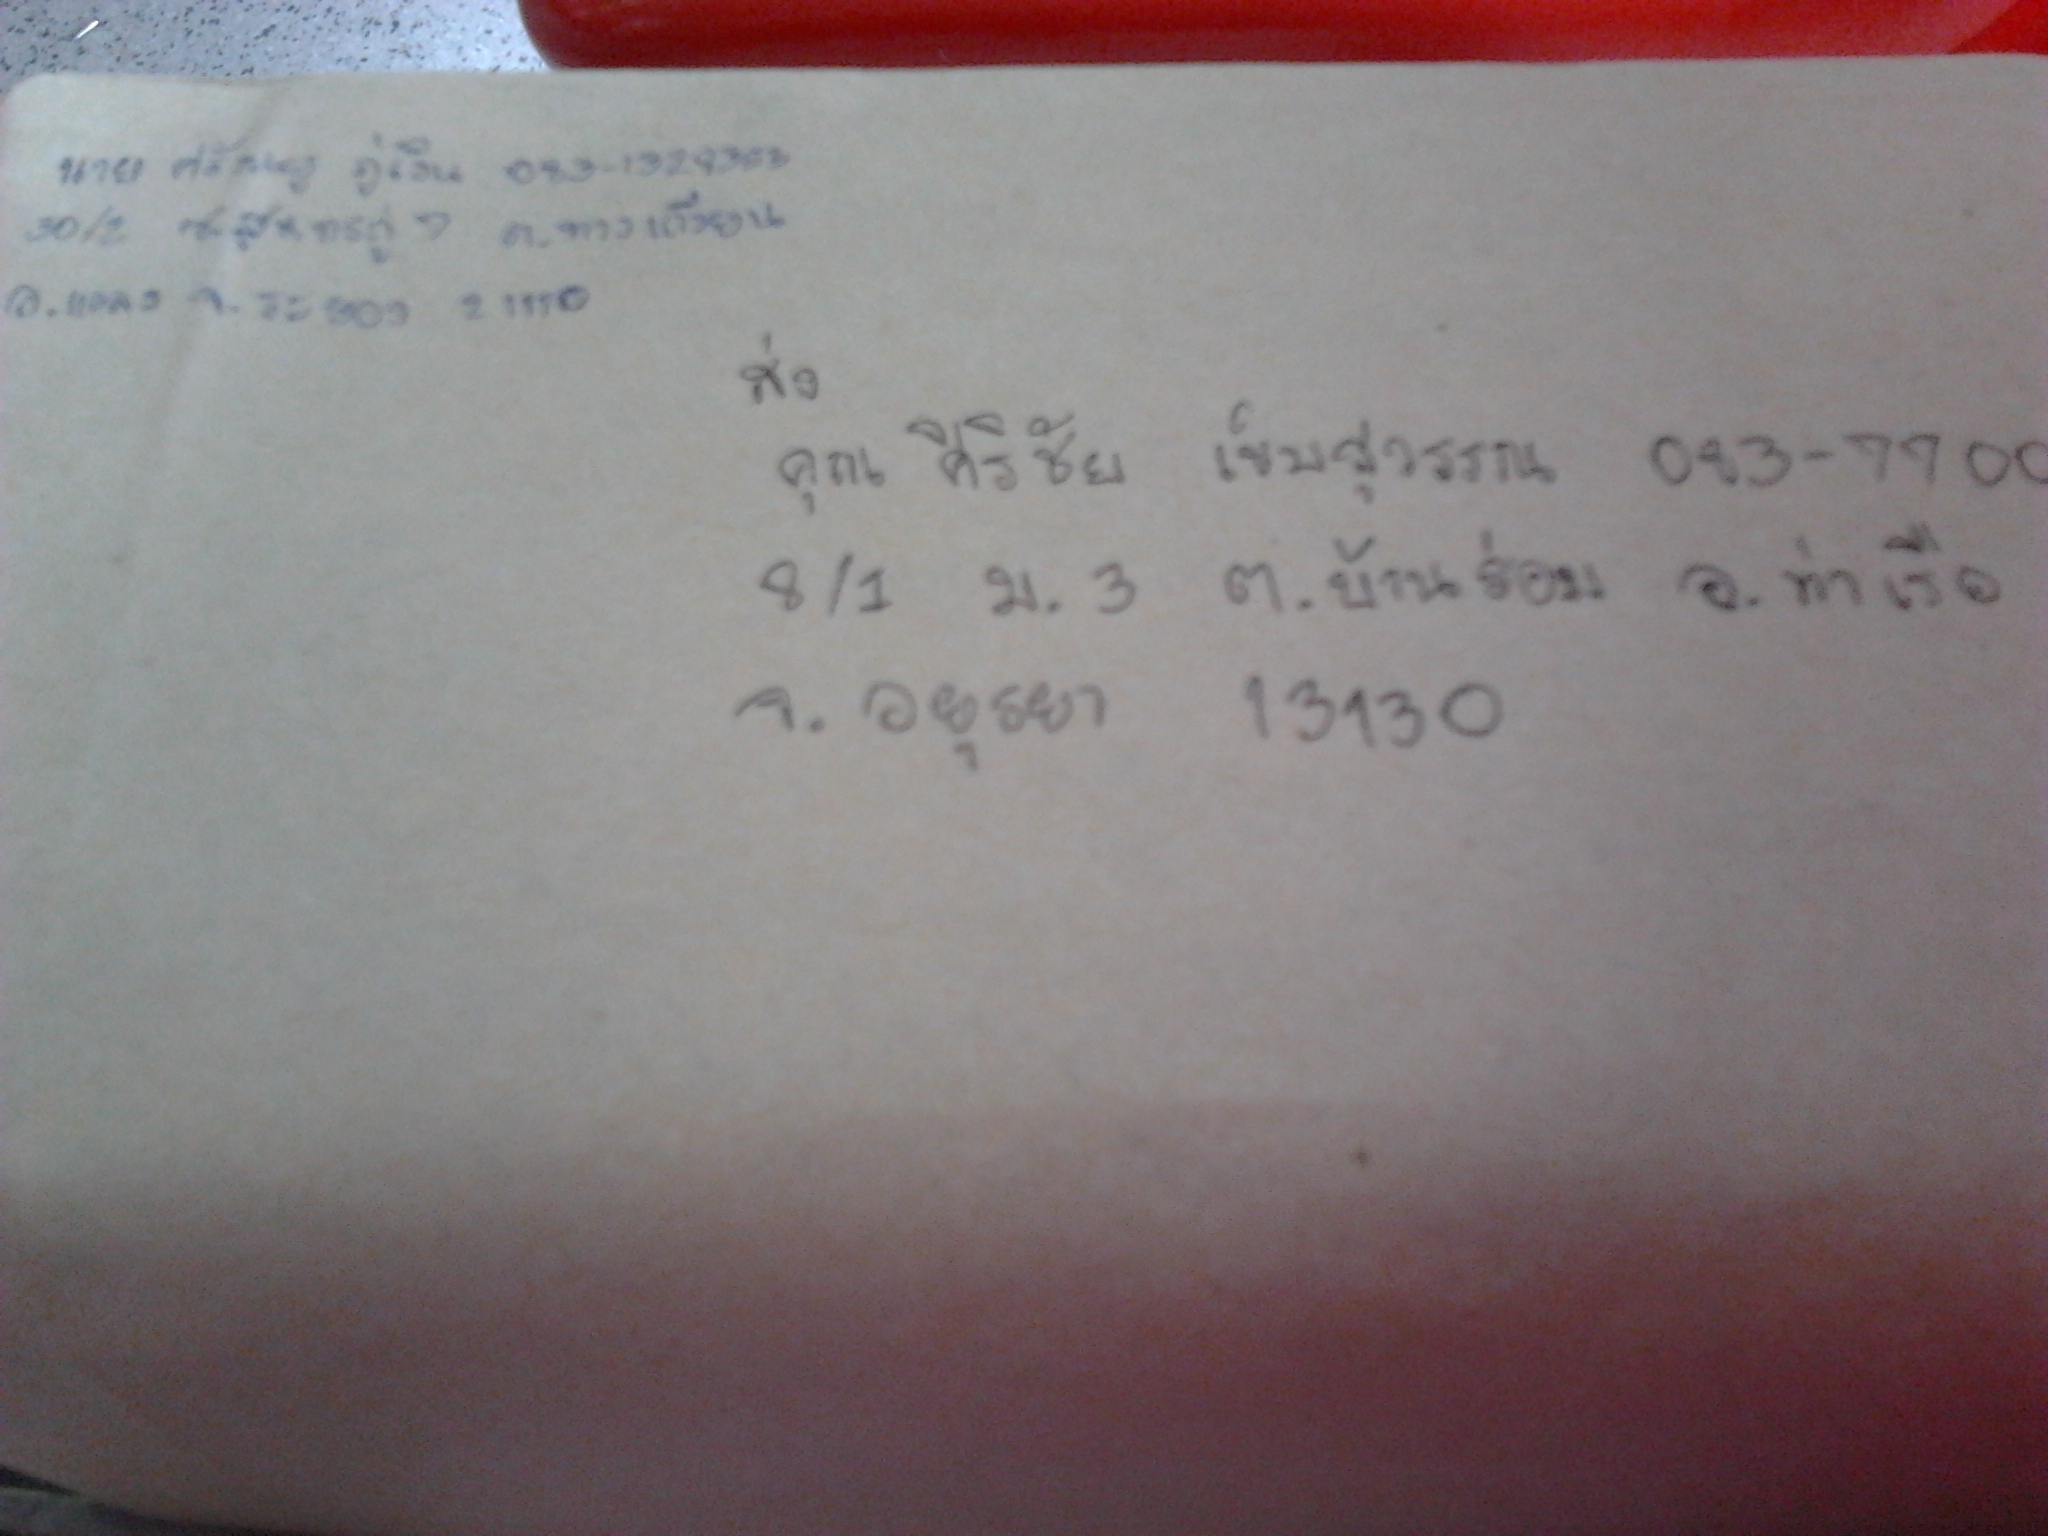 นาย ศรัณญู ภู่เงิน 083-1329303
30/2 ซ.สุนทรภู่ 7 ต.ทางเกวียน
อ.แกลง จ.ระยอง 21110
ส่ง
คุณ ศิริชัย เข็บสุวรรณ 083-7700
8/1 ม.3 ต.บ้านร่อม อ.ท่าเรือ
จ.อยุธยา 13130